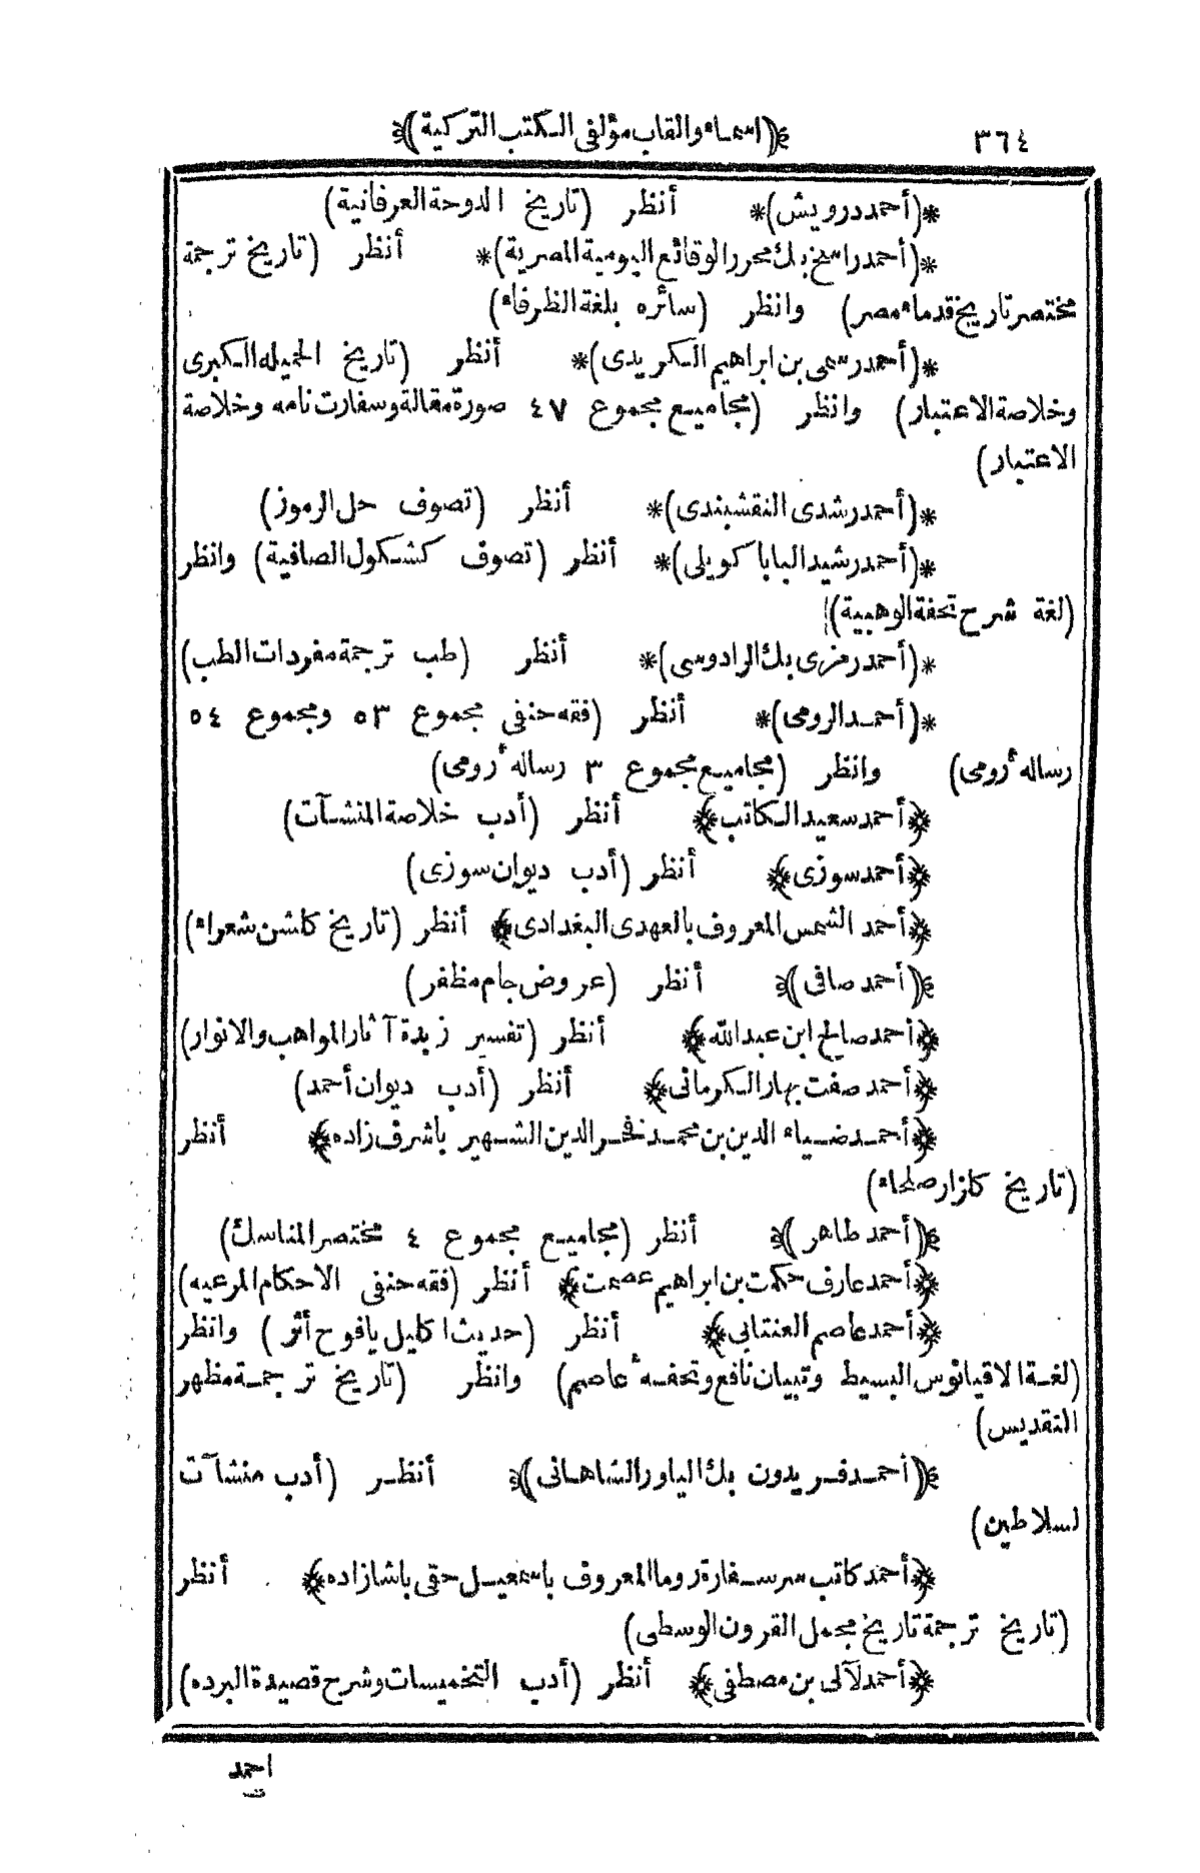 ٣٦٤ ﴿(اسماء والقاب مؤلفى الكتب التركية)﴾
*(أحمد درويش)* أنظر (تاريخ الدوحة العرفانية)
*(أحمد راسخ بك محرر الوقائع اليومية المصرية)* أنظر (تاريخ ترجمة
مختصر تاريخ قدماء مصر) وانظر (سائره بلغة الظرفاء)
*(أحمد رسمى بن ابراهيم الكريدى)* أنظر (تاريخ الخميله الكبرى
وخلاصة الاعتبار) وانظر (مجاميع مجموع ٤٧ صورة مقالة وسفارت نامه وخلاصة
الاعتبار)
*(أحمد رشدى النقشبندى)* أنظر (تصوف حل الرموز)
*(أحمد رشيد البابا كويلى)* أنظر (تصوف كشكول الصافية) وانظر
(لغة شرح تحفة الوهبية)
*(أحمد رمزى بك الرادوسى)* أنظر (طب ترجمة مفردات الطب)
*(أحمد الرومى)* أنظر (فقه حنفى مجموع ٥٣ ومجموع ٥٤
رسالهٔ رومى) وانظر (مجاميع مجموع ٣ رسالهٔ رومى)
﴿أحمد سعيد الكاتب﴾ أنظر (أدب خلاصة المنشآت)
﴿أحمد سوزى﴾ أنظر (أدب ديوان سوزى)
﴿أحمد الشمس المعروف بالعهدى البغدادى﴾ أنظر (تاريخ كلشن شعراء)
﴿(أحمد صافى)﴾ أنظر (عروض جام مظفر)
﴿أحمد صالح ابن عبد الله﴾ أنظر (تفسير زبدة آثار المواهب والانوار)
﴿أحمد صفت بهار الكرمانى﴾ أنظر (أدب ديوان أحمد)
﴿أحمد ضياء الدين بن محمد فخر الدين الشهير باشرف زاده﴾ أنظر
(تاريخ كلزار صلحاء)
﴿(أحمد طاهر)﴾ أنظر (مجاميع مجموع ٤ مختصر المناسك)
﴿أحمد عارف حكمت بن ابراهيم عصمت﴾ أنظر (فقه حنفى الاحكام المرعيه)
﴿أحمد عاصم العنتابى﴾ أنظر (حديث اكليل يافوح أثر) وانظر
(لغة الاقيانوس البسيط وتبيان نافع وتحفهٔ عاصم) وانظر (تاريخ ترجمة مظهر
التقديس)
﴿(أحمد فريدون بك الياور الشاهانى)﴾ أنظر (أدب منشآت
لسلاطين)
﴿أحمد كاتب سر سفارة روما المعروف باسمعيل حقى باشا زاده﴾ أنظر
(تاريخ ترجمة تاريخ مجمل القرون الوسطى)
﴿أحمد لآلى بن مصطفى﴾ أنظر (أدب التخميسات وشرح قصيدة البرده)
احمد